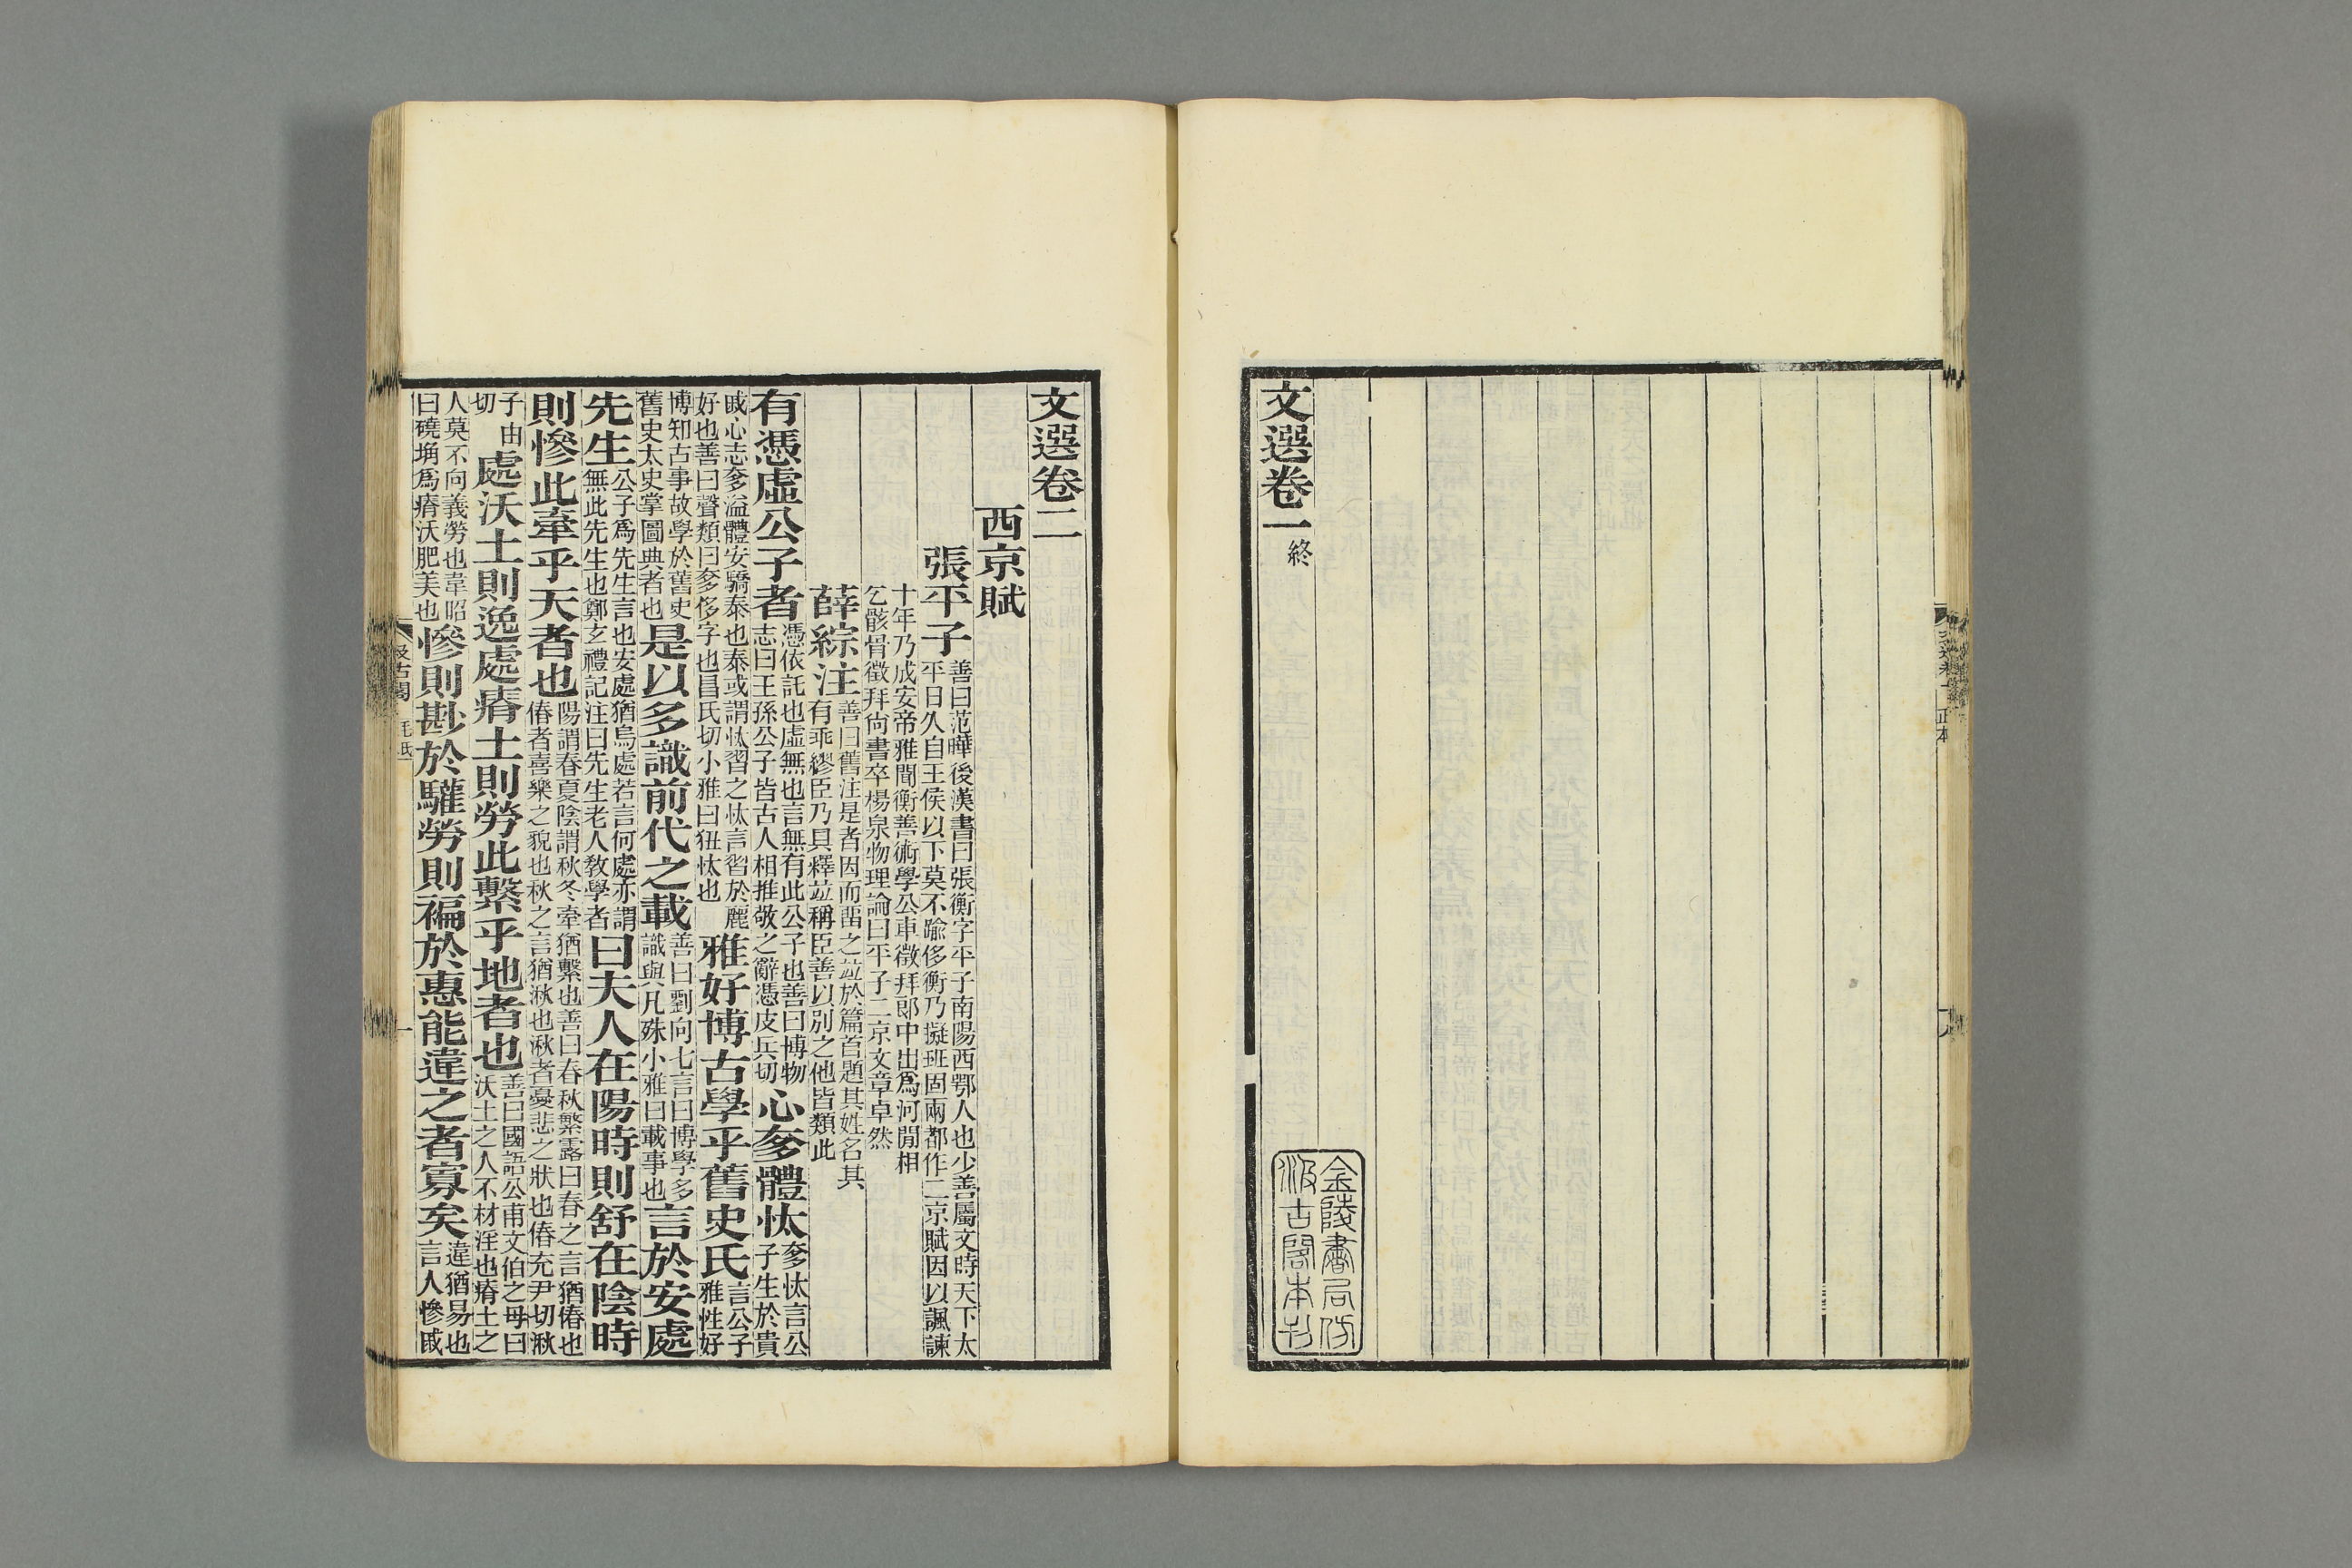 文選卷一終
金陵書局仿
汲古閣本刊
文選卷二
西京賦
張平子善曰范曄後漢書曰張衡字平子南陽西鄂人也少善屬文時天下太平日久自王侯以下莫不踰侈衡乃擬班固兩都作二京賦因以諷諫
十年乃成安帝雅聞衡善術學公車徵拜郎中出爲河閒相乞骸骨徵拜尙書卒楊泉物理論曰平子二京文章卓然
薛綜注善曰舊注是者因而畱之竝於篇首題其姓名其有乖繆臣乃具釋竝稱臣善以別之他皆類此
有憑虛公子者憑依託也虛無也言無有此公子也善曰博物志曰王孫公子皆古人相推敬之辭憑皮兵切心奓體忲奓忲言公子生於貴
戚心志奓溢體安驕泰也泰或謂忲習之忲言習於麗好也善曰聲類曰奓侈字也昌氏切小雅曰狃忲也雅好博古學乎舊史氏言公子雅性好
博知古事故學於舊史舊史太史掌圖典者也是以多識前代之載善曰劉向七言曰博學多識與凡殊小雅曰載事也言於安處
先生公子爲先生言也安處猶烏處若言何處亦謂無此先生也鄭玄禮記注曰先生老人敎學者曰夫人在陽時則舒在陰時
則慘此牽乎天者也陽謂春夏陰謂秋冬牽猶繫也善曰春秋繁露曰春之言猶偆也偆者喜樂之貌也秋之言猶湫也湫者憂悲之狀也偆充尹切湫
子由切處沃土則逸處瘠土則勞此繫乎地者也善曰國語公甫文伯之母曰沃土之人不材淫也瘠土之
人莫不向義勞也韋昭曰磽埆爲瘠沃肥美也慘則尠於驩勞則褊於惠能違之者寡矣違猶易也言人慘戚
汲古閣 毛氏